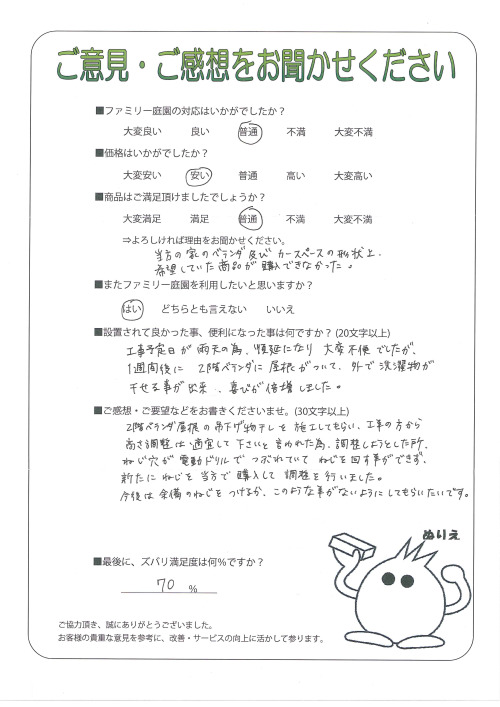 ご意見・ご感想をお聞かせください
■ファミリー庭園の対応はいかがでしたか？
大変良い　良い　普通　不満　大変不満
■価格はいかがでしたか？
大変安い　安い　普通　高い　大変高い
■商品はご満足頂けましたでしょうか？
大変満足　満足　普通　不満　大変不満
⇒よろしければ理由をお聞かせください。
当方の家のベランダ及びカースペースの形状上、
希望していた商品が購入できなかった。
■またファミリー庭園を利用したいと思いますか？
はい　どちらとも言えない　いいえ
■設置されて良かった事、便利になった事は何ですか？(20文字以上)
工事予定日が雨天の為、順延になり大変不便でしたが、
1週間後に2階ベランダに屋根がついて、外で洗濯物が
干せる事が出来、喜びが倍増しました。
■ご感想・ご要望などをお書きくださいませ。(30文字以上)
2階ベランダ屋根の吊下げ物干しを施工してもらい、工事の方から
高さ調整は適宜して下さいと言われた為、調整しようとした所、
ねじ穴が電動ドリルでつぶれていてねじを回す事ができず、
新たにねじを当方で購入して調整を行いました。
今後は余備のねじをつけるか、このような事がないようにしてもらいたいです。
ぬりえ
■最後に、ズバリ満足度は何％ですか？
70 ％
ご協力頂き、誠にありがとうございました。
お客様の貴重な意見を参考に、改善・サービスの向上に活かして参ります。